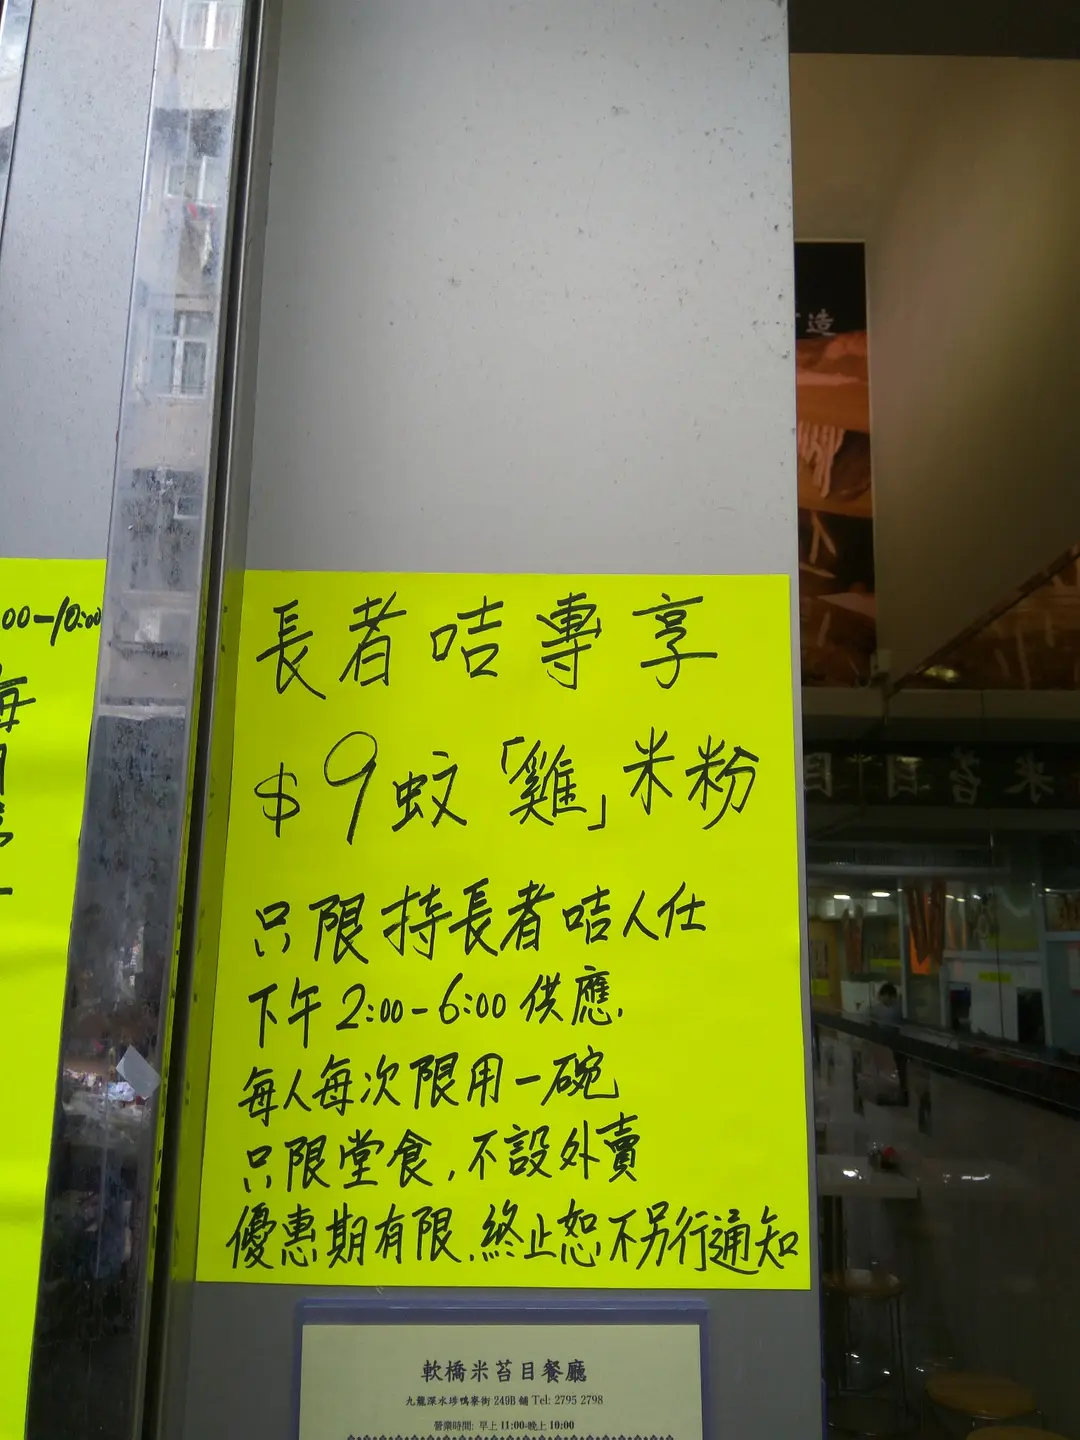 00-10:00
每
長者咭專享
$9蚊「雞」米粉
只限持長者咭人仕
下午2:00-6:00供應.
每人每次限用一碗
只限堂食,不設外賣
優惠期有限.終止恕不另行通知
軟橋米苔目餐廳
九龍深水埗鴨寮街249B舖 Tel: 2795 2798
營業時間: 早上11:00-晚上10:00
造
米苔目